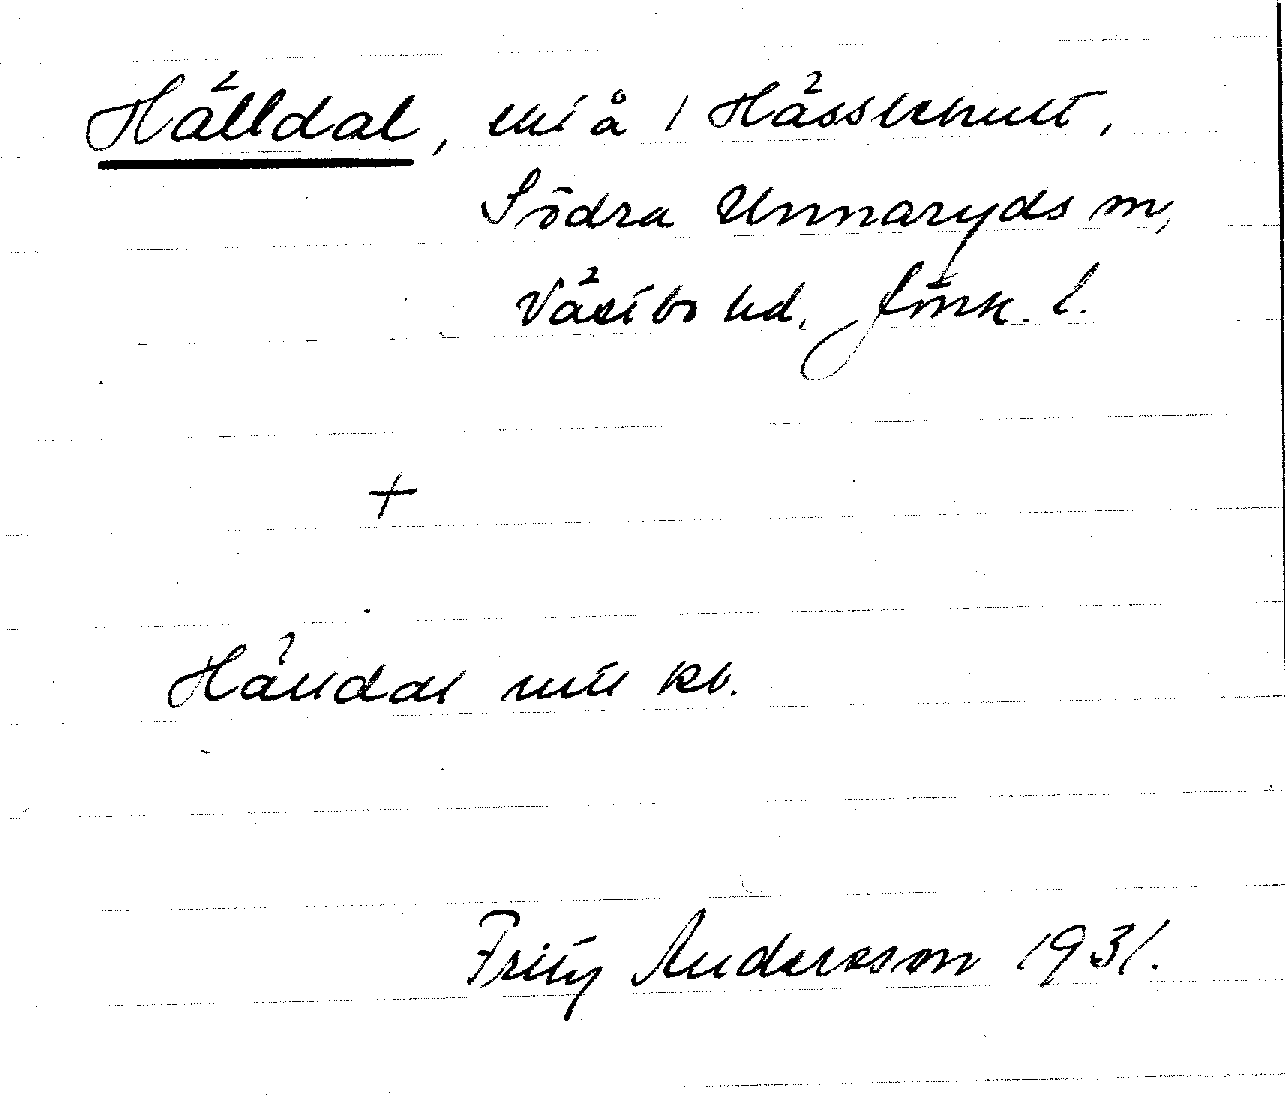 Hälldal, tht å i Hässlehult,
Södra Unnaryds sn,
Västbo hd. Jönk. l.
+
Hälldal utt kb.
Fritz Andersson 1931.